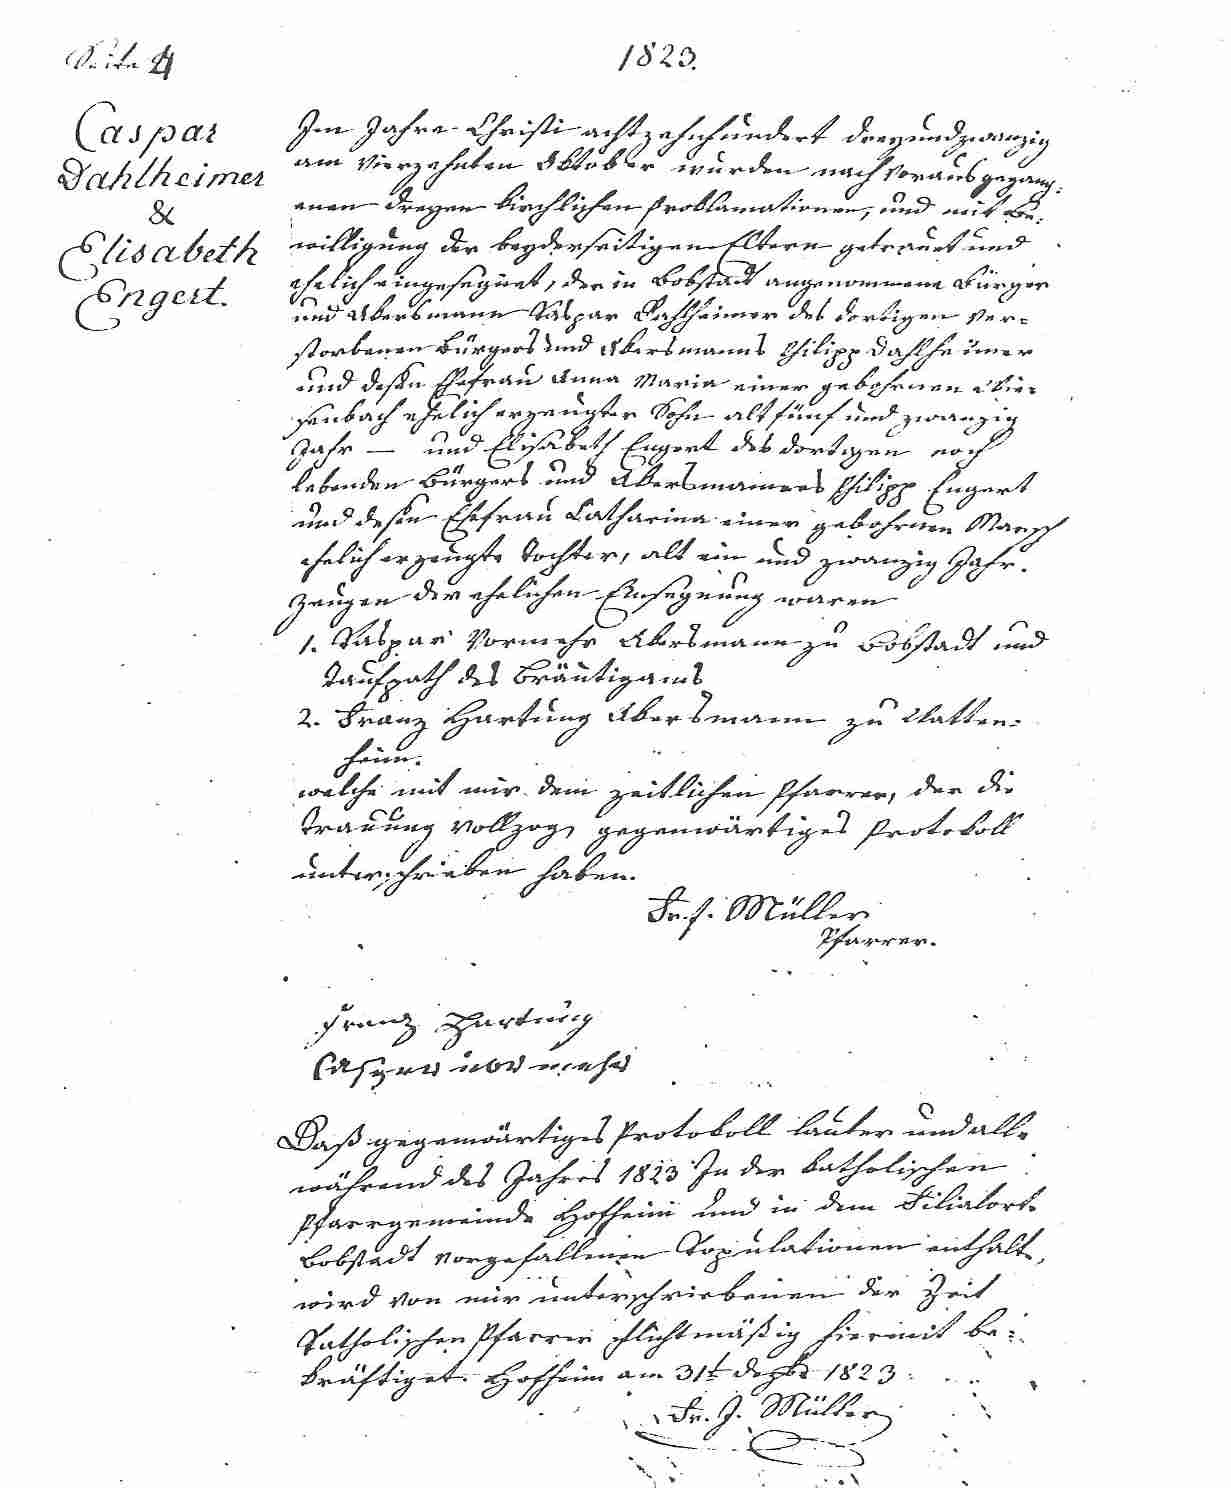 Seite 4
1823.
Caspar
Dahlheimer
&
Elisabeth
Engert.
Im Jahre Christi achtzehnhundert dreyundzwanzig
am vierzehnten Oktober wurden nach vorausgegang-
enen dreyen kirchlichen Proklamationen, und mit Be-
willigung der beyderseitigen Eltern getrauet und
ehelich eingesegnet, der in Bobstadt angenommene Bürger
und Akersmann Caspar Dahlheimer des dortigen ver-
storbenen Bürgers und Akersmanns Philipp Dahlheimer
und dessen Ehefrau Anna Maria einer gebohrnen
ehelich erzeugter Sohn alt fünf und zwanzig
Jahr — und Elisabeth Engert des dortigen noch
lebenden Bürgers und Akersmannes Philipp Engert
und dessen Ehefrau Catharina einer gebohrnen Marsch
ehelich erzeugte Tochter, alt ein und zwanzig Jahr.
Zeugen der ehelichen Einsegnung waren
1. Caspar Vormehr Akersmann zu Bobstadt und
Taufpath des Bräutigams
2. Franz Hartung Akersmann zu Watten-
heim.
welche mit mir dem zeitlichen Pfarrer, der die
Trauung vollzog, gegenwärtiges Protokoll
unterschrieben haben.
Fr. J. Müller
Pfarrer.
Franz Hartung
Casper vor mehr
Daß gegenwärtiges Protokoll lauter und alle
während des Jahres 1823 In der katholischen
Pfarrgemeinde Hofheim und in dem Filialort
Bobstadt vorgefallenen Copulationen enthalte,
wird von mir unterschriebenen der Zeit
Katholischen Pfarrer pflichtmäßig hiermit be-
kräftiget. Hofheim am 31t Dezbr 1823
Fr. J. Müller